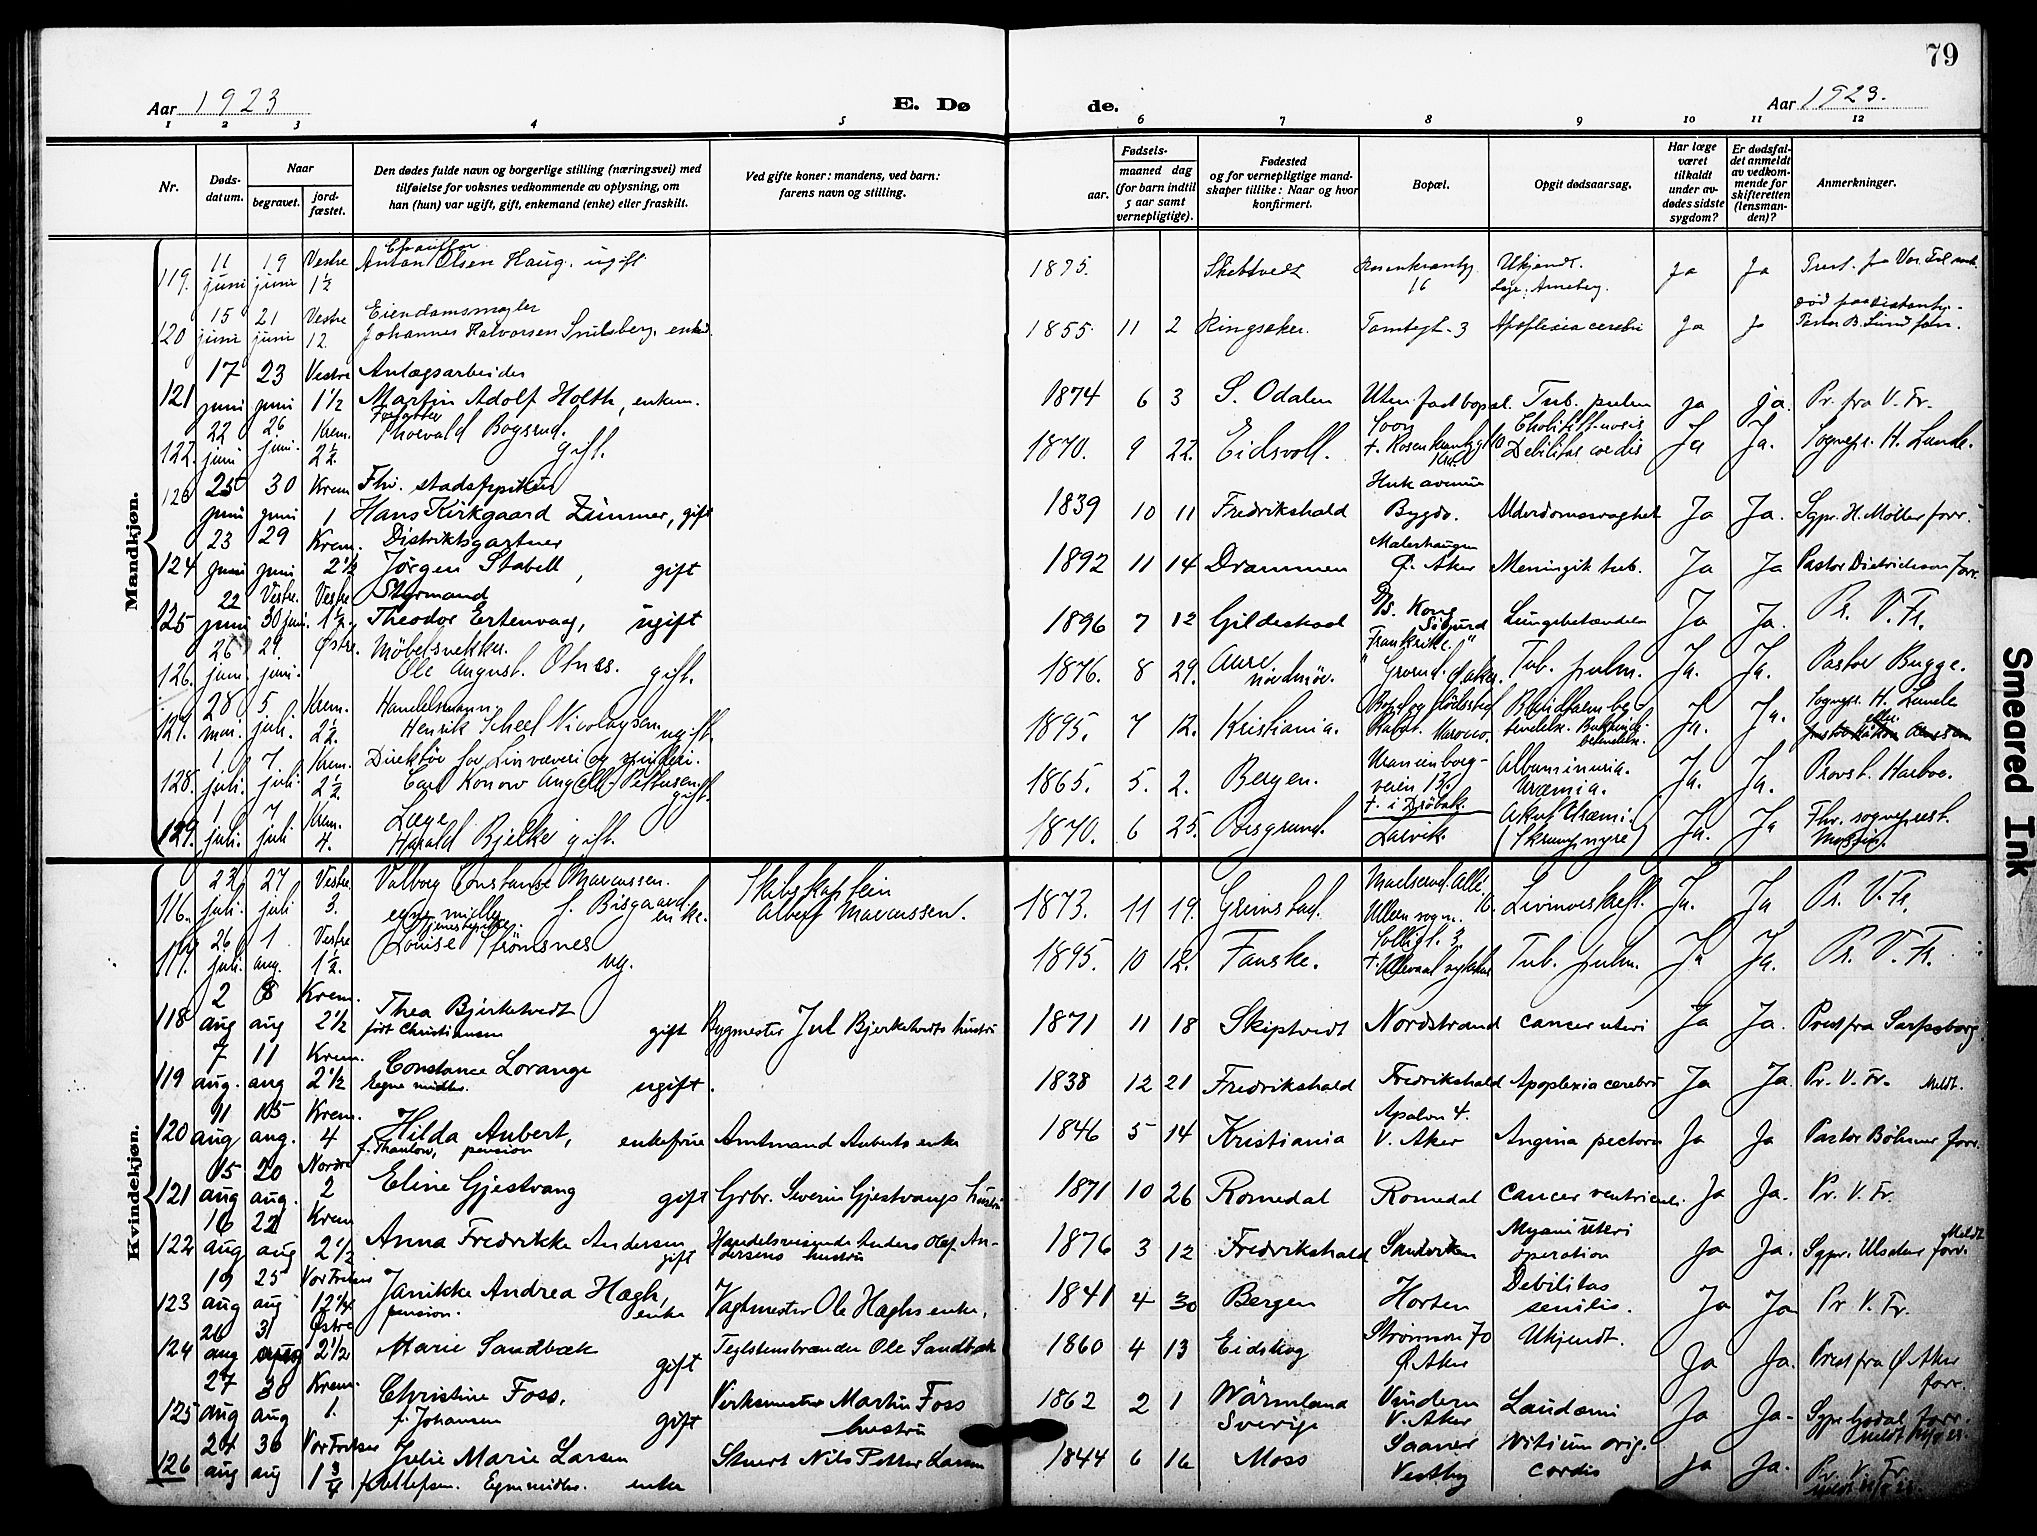 79
Aar 1923
E. Dø
de.
Aar 1923.
1 2 3 4 5 6 7 8 9 10 11 12
Nr.
Døds-
datum.
Naar
begravet.
jord-
fæstet.
Den dødes fulde navn og borgerlige stilling (næringsvei) med
tilføielse for voksnes vedkommende av oplysning, om
han (hun) var ugift, gift, enkemand (enke) eller fraskilt.
Ved gifte koner: mandens, ved barn:
farens navn og stilling.
Fødsels-
aar.
maaned dag
(for barn indtil
5 aar samt
vernepligtige).
Fødested
og for vernepligtige mand-
skaper tillike: Naar og hvor
konfirmert.
Bopæl.
Opgit dødsaarsag.
Har læge
været
tilkaldt
under av-
dødes sidste
sygdom?
Er dødsfal-
det anmeldt
av vedkom-
mende for
skifteretten
(lensman-
den)?
Anmerkninger.
Mandkjøn.
11 19 Vestre Chauffør
119. juni juni 1½ Anton Olsen Haug. ugift 1875. Ukjendt. Ja Ja
15 21 Vestre Eiendomsmægler
120 juni juni 12. Johannes Halvorsen 1855. 11 2 Ringsaker. Tomtegt. 3 Apoplexia cerebri Ja Ja Pastor B. Lund forr.
17 23 Vestre Anlægsarbeider
121 juni juni 1½ Martin Adolf Holth, enkem. 1874 6 3 S. Odalen Uten fast bopæl. Tub. pulm ja ja. Pr. fra V. Fr.
22 26 Krem. Forfatter
122. juni juni. 2½. Thorvald Bogsrud. gift. 1870. 9 22. Eidsvoll. Debilitas cordis Ja Ja. Sognepr. H. Lunde.
25 30 Krem Fhv. stadsfysikus Huk avenue
123 juni juni 1 Hans Kirkgaard Zimmer, gift 1839 10 11 Fredrikshald Bygdø. Alderdomssvaghet Ja Ja. Sgpr. H. Møller forr.
23 29 Krem. Distriktsgartner Malerhaugen
124 juni juni 2½ Jørgen Stabell, gift 1892 11 14 Drammen Ø. Aker Meningit tub. Ja Ja Pastor Dietrichson forr.
22 Vestre. Vestre Styrmand
125 juni 30 juni. 1½. Theodor Ertenvaag, ugift 1896 7 12 Gildeskaal D/s. Kong Sigurd Lungebetændelse Ja Ja. Pr. V. Fr.
26 29. Østre. Møbelsnekker. Frankrike."
126. juni. juni. Ole August. Otnes. gift. 1876. 8 29. Aure Nordmør. Grorud. Ø. Aker. Tub. pulm. Ja. Ja. Pastor Bugge.
28 5 Krem. Handelsmann Sognepr. H. Lunde
127. mai. juli. 2½. Henrik Scheel Nicolaysen ugift. 1895. 7 12. Kristiania. Rabat. Marocco. Ja. Ja.
1 7 Krem. Direktør for Linvæveri og spinderi.
128. juli. juli. 2½. Carl Konow Angell Pettersen gift. 1865. 5. 2. Bergen. Uranienborg-veien 13. Albuminuria. Uræmia. Ja. Ja. Provst. Harboe.
1 7 Krem. Læge † i Drøbak. Akut Uræmi.
129. juli. juli 4. Harald Bjelke gift. 1870. 6 25. Porsgrund. Larvik (Skrumpnyre) Ja. Ja Fhv. sogneprest.
Kvindekjøn.
23 27 Vestre Valborg Constanse Marcussen. Skibskaptein
116. juli. juli 3. egne midler f. Bisgaard enke. Albert Marcussen. 1873. 11 19. Grimstad. Ullern sogn. Livmorkreft. Ja. Ja Pr. V. Fr.
26 1 Vestre Tjenestepike. Solligt. 3
117. juli. aug. 1½. Louise Strømsnes ug. 1895. 10 12. Fauske. † Ullevaal sykehus Tub. pulm. Ja Ja. Pr. V. Fr.
2 8 Krem. Thea Bjerketvedt
118 aug aug 2½ født Christiansen gift Bygmester Jul Bjerketvedts hustru 1871 11 18 Skiptvedt Nordstrand Cancer uteri Ja Ja. Prest fra Sarpsborg.
7 11 Krem. Constance Lorange
119 aug. aug 2½ Egne midler. ugift. 1838 12 21 Fredrikshald Fredrikshald Apoplexia cerebri Ja Ja. Pr. V. Fr. Meldt.
11 15 Krem. Hilda Aubert, Apalvn 4.
120 aug aug. 4 f. Thaulow, pension enkefrue Amtmand Auberts enke 1846 5 14 Kristiania V. Aker Angina pectoris Ja Ja Pastor Bøhmer forr.
15 20 Nordre
121 aug aug. 2 Eline Gjestvang gift Grbr. Severin Gjestvangs hustru 1871 10 26 Romedal Romedal Cancer ventriculi. Ja Ja. Pr. V. Fr.
16 22 Krem Anna Fredrikke Andersen Handelsreisende Anders Olaf An- Myoma uteri Meldt
122 aug aug 2½ gift dersens hustru 1876 3 12 Fredrikshald Sandviken operation Ja Ja. Sgpr. Ulsaker forr.
19 25 Vor Frelsers Janikke Andrea Hægh, Debilitas
123 aug aug 12¼ pension. enke Vagtmester Ole Hæghs enke, 1841 4 30 Bergen Horten senilis. Ja Ja Pr V. Fr.
26 31 Østre Marie Sandbæk Strømsvn 70
124 aug aug 2½ gift Teglstensbrænder Ole Sandbæk 1860 4 13 Eidskog Ø. Aker Ukjendt. Ja Ja. Prest fra Ø Aker forr.
27 30 Krem. Christine Foss, Verksmester Martin Foss
125 aug aug 1. f. Johansen gift hustru 1862 2 1 Wärmland Sverige Vindern V. Aker Ja Ja.
24 30 Vor Frelser Julie Marie Larsen Vitium orig.
126 aug aug 1¾ f. Ellefsen. Egne midler. enke Stuert Nils Petter Larsen 1844 6 16 Moss Vestby cordis Ja Ja. Pr. V. Fr.
Smeared Ink